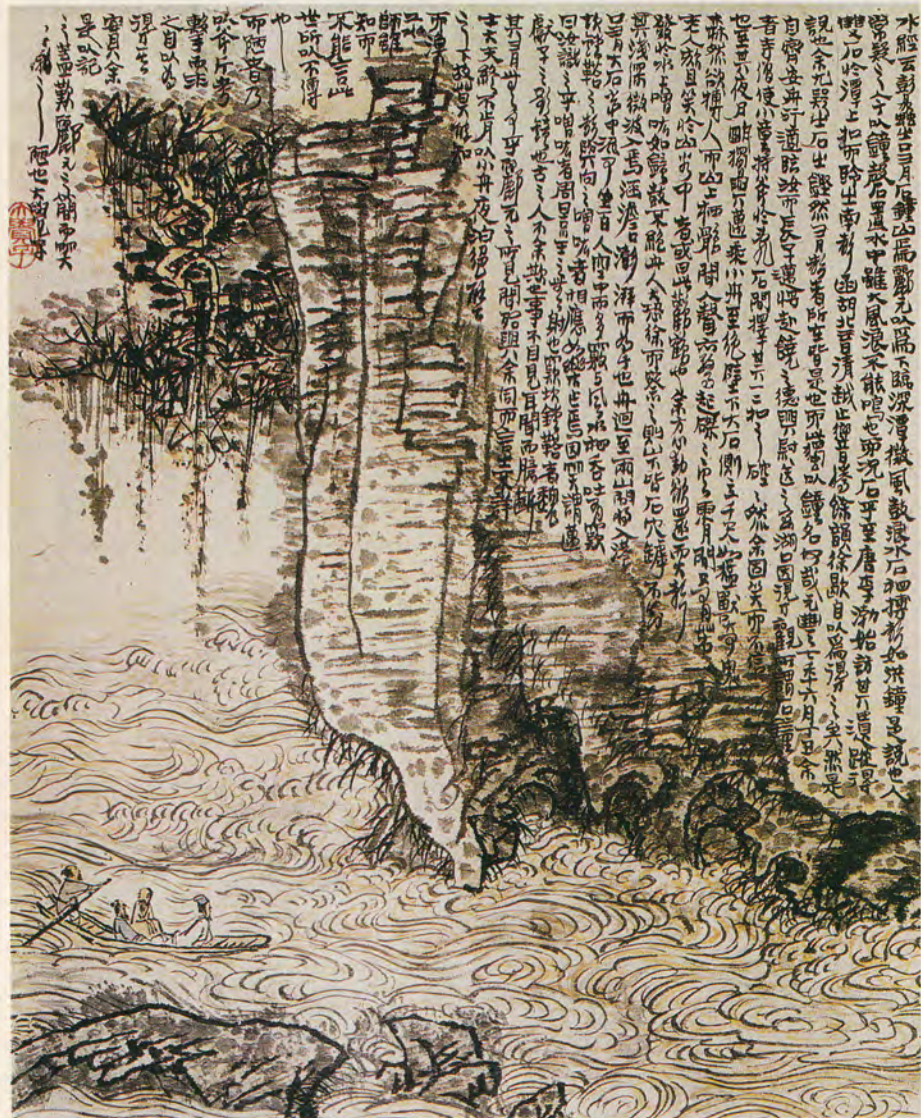 水經云彭蠡之口有石鐘山焉酈元以為下臨深潭微風鼓浪水石相搏聲如洪鐘是說也人
常疑之今以鐘磬石置水中雖大風浪不能鳴也而況石乎至唐李渤始訪其遺蹤得
雙石於潭上扣而聆之南聲函胡北音清越止響騰餘韻徐歇自以為得之矣然是
說也余尤疑之石之鏗然有聲者所在皆是也而此獨以鐘名何哉元豐七年六月丁丑余
自齊安舟行適臨汝而長子邁將赴饒之德興尉送之至湖口因得觀所謂石鐘
者寺僧使小童持斧於亂石間擇其一二扣之硿硿然余固笑而不信
也至其夜月明獨與邁乘小舟至絕壁下大石側立千尺如猛獸奇鬼
森然欲搏人而山上栖鶻聞人聲亦驚起磔磔雲霄間又有若
老人欬且笑於山谷中者或曰此鸛鶴也余方心動欲還而大聲
發於水上噌吰如鐘鼓不絕舟人大恐徐而察之則山下皆石穴罅不知
其淺深微波入焉涵澹澎湃而為此也舟迴至兩山間將入港
口有大石當中流可坐百人空中而多竅與風水相吞吐有窾
坎鏜鞳之聲與向之噌吰者相應如樂作焉因笑謂邁
曰汝識之乎噌吰者周景王之無射也窾坎鏜鞳者魏
獻子之歌鐘也古之人不余欺也事不目見耳聞而臆斷
其有無可乎酈元之所見聞殆與余同而言之不詳
士大夫終不肯以小舟夜泊絕壁
之下故莫能知
而漁
工水
師雖
知而
不能言此
世所以不傳
也
而陋者乃
以斧斤考
擊而求
之自以為
得其
實余
是以記
之蓋歎酈元之簡而笑李
渤之陋也大滌子